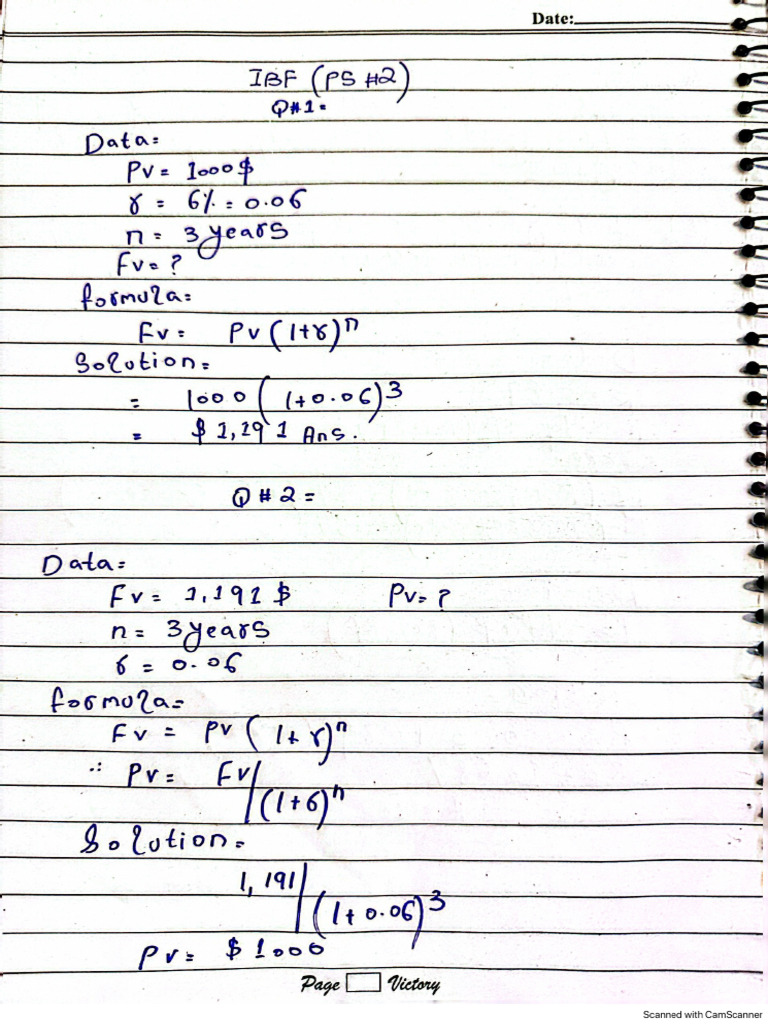 Date:
IBF (PS #2)
Q#1=
Data=
PV= 1000$
r = 6% = 0.06
n = 3 years
Fv= ?
formula=
Fv= Pv(1+r)^n
Solution=
= 1000 (1+0.06)^3
= $ 1,191 Ans.
Q#2=
Data=
Fv= 1,191 $ Pv= ?
n = 3 years
r = 0.06
formula=
Fv = Pv (1+r)^n
∴ Pv= Fv/(1+r)^n
Solution=
1,191/(1+0.06)^3
Pv= $ 1000
Page Victory
Scanned with CamScanner